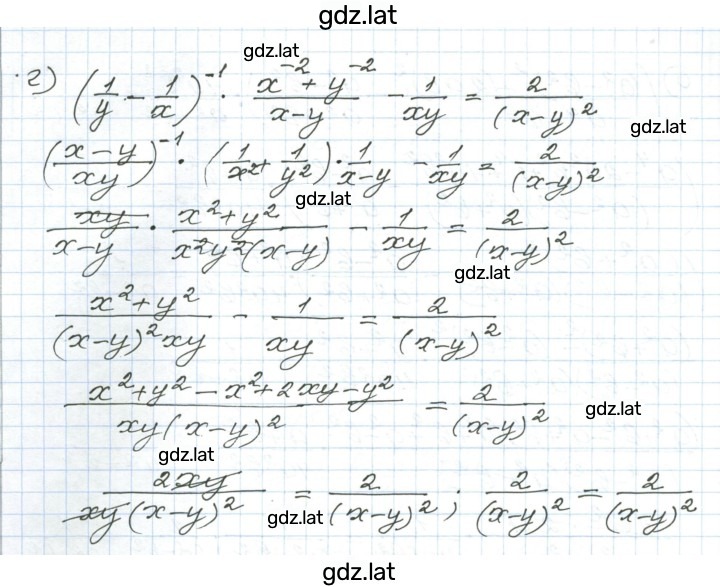 gdz.lat
gdz.lat
г) (1/y - 1/x)^-1 · (x^-2 + y^-2)/(x-y) - 1/(xy) = 2/(x-y)^2
gdz.lat
((x-y)/(xy))^-1 · (1/x^2 + 1/y^2) · 1/(x-y) - 1/(xy) = 2/(x-y)^2
gdz.lat
xy/(x-y) · (x^2+y^2)/(x^2y^2(x-y)) - 1/(xy) = 2/(x-y)^2
gdz.lat
(x^2+y^2)/((x-y)^2xy) - 1/(xy) = 2/(x-y)^2
(x^2+y^2-x^2+2xy-y^2)/(xy(x-y)^2) = 2/(x-y)^2
gdz.lat
gdz.lat
2xy/(xy(x-y)^2) = 2/(x-y)^2; 2/(x-y)^2 = 2/(x-y)^2
gdz.lat
gdz.lat